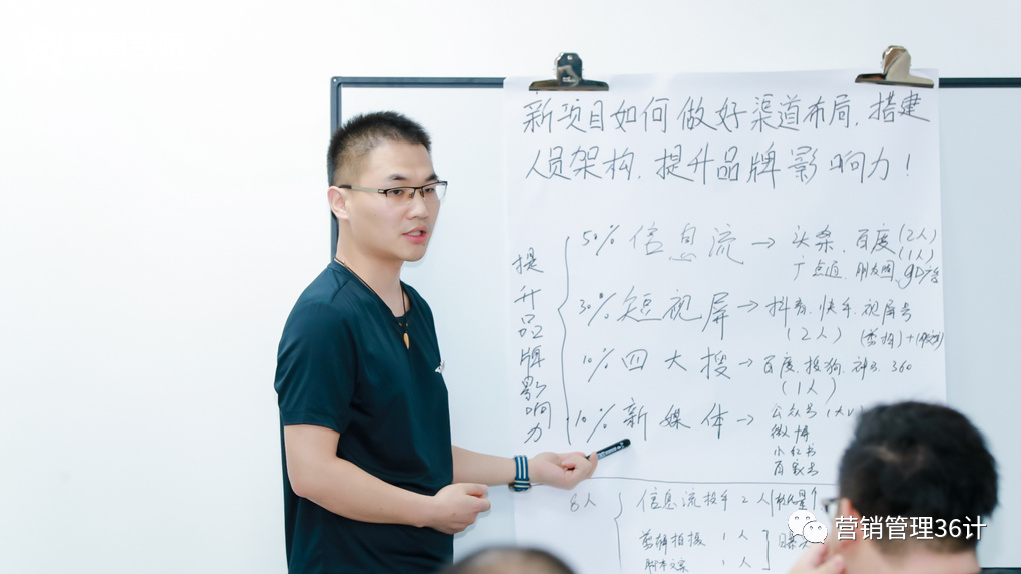 新项目如何做好渠道布局,搭建
人员架构,提升品牌影响力!
提升品牌影响力
50% 信息流 → 头条、百度(2人)
(1人)
广点通、朋友圈
30% 短视屏 → 抖音、快手、视屏号
(2人) (剪辑)+
10% 四大搜 → 百度、搜狗、神马、360
(1人)
10% 新媒体 → 公众号
微博
小红书
百家号
8人
信息流投手 2人
剪辑拍摄 1人
脚本文案 1人
营销管理36计